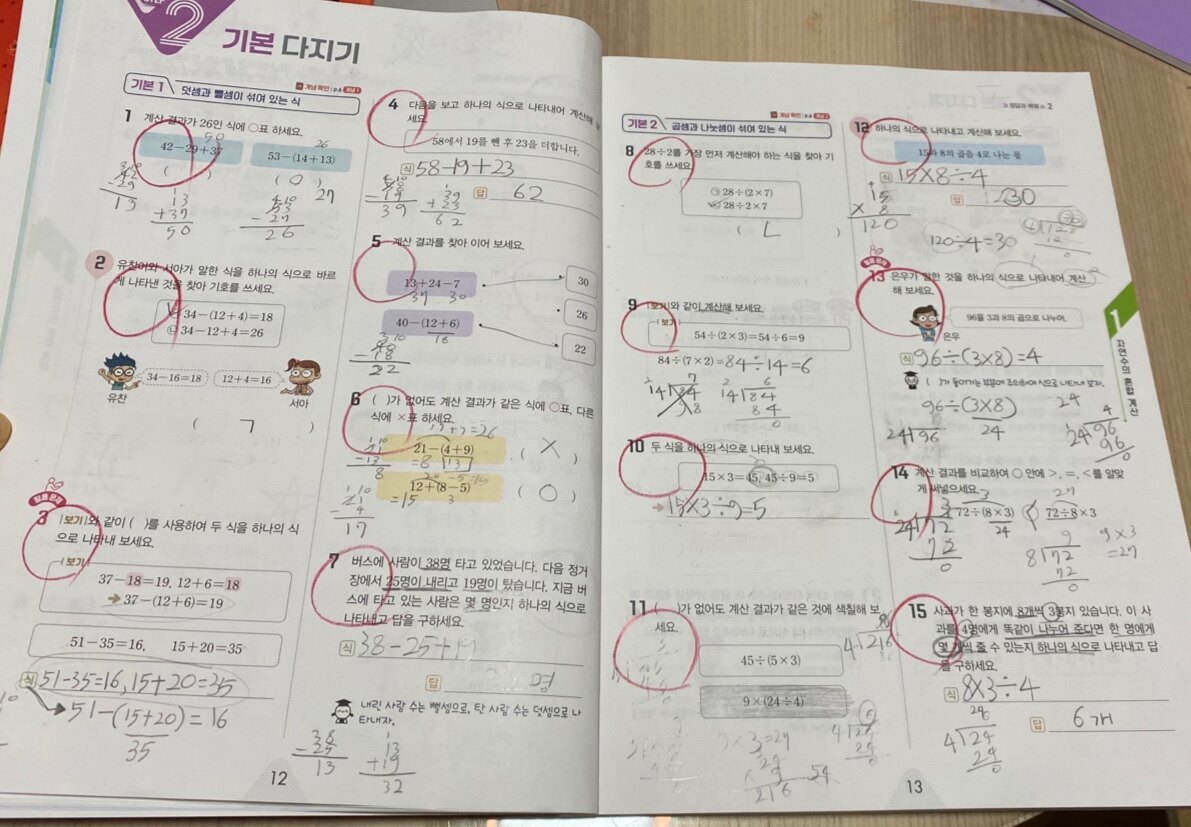 STEP 2
기본 다지기
기본 1 덧셈과 뺄셈이 섞여 있는 식
개념 확인 p.6 개념 1
1 계산 결과가 26인 식에 ○표 하세요.
50
26
42-29+37
53-(14+13)
( )
( ○ )
27
42
-29
13
13
+37
50
53
-27
26
2 유찬이와 서아가 말한 식을 하나의 식으로 바르
게 나타낸 것을 찾아 기호를 쓰세요.
㉠ 34-(12+4)=18
㉡ 34-12+4=26
34-16=18
12+4=16
유찬
서아
( ㄱ )
3 |보기|와 같이 ( )를 사용하여 두 식을 하나의 식
으로 나타내 보세요.
|보기|
37-18=19, 12+6=18
➔ 37-(12+6)=19
51-35=16, 15+20=35
식 51-35=16, 15+20=35
→ 51-(15+20)=16
35
12
4 다음을 보고 하나의 식으로 나타내어 계산해
58에서 19를 뺀 후 23을 더합니다.
식 58-19+23
답 62
58
-19
39
39
+23
62
5 계산 결과를 찾아 이어 보세요.
13+24-7
37 30
40-(12+6)
18
30
26
22
22
6 ( )가 없어도 계산 결과가 같은 식에 ○표, 다른
식에 ×표 하세요.
21-(4+9)
=8 13
( × )
12+(8-5)
=15 3
( ○ )
21
-13
8
17
7 버스에 사람이 38명 타고 있었습니다. 다음 정거
장에서 25명이 내리고 19명이 탔습니다. 지금 버
스에 타고 있는 사람은 몇 명인지 하나의 식으로
나타내고 답을 구하세요.
식 38-25+19
답 명
내린 사람 수는 뺄셈으로, 탄 사람 수는 덧셈으로 나
타내자.
38
-25
13
13
+19
32
정답과 해설 p. 2
기본 2 곱셈과 나눗셈이 섞여 있는 식
개념 확인 p.6 개념 2
8 28÷2를 가장 먼저 계산해야 하는 식을 찾아 기
호를 쓰세요.
㉠ 28÷(2×7)
㉡ 28÷2×7
( ㄴ )
9 |보기|와 같이 계산해 보세요.
|보기|
54÷(2×3)=54÷6=9
84÷(7×2)=84÷14=6
14 84
6
84
0
10 두 식을 하나의 식으로 나타내 보세요.
15×3=45, 45÷9=5
➔ 15×3÷9=5
11 ( )가 없어도 계산 결과가 같은 것에 색칠해 보
세요.
45÷(5×3)
9×(24÷4)
4 216
4 24
24
0
216
54
12 하나의 식으로 나타내고 계산해 보세요.
15와 8의 곱을 4로 나눈 몫
식 15×8÷4
답 30
15
×8
120
120÷4=30
13 은우가 말한 것을 하나의 식으로 나타내어 계산
해 보세요.
96을 3과 8의 곱으로 나누어.
은우
식 96÷(3×8)=4
( )가 들어가는 부분에 주의하여 식으로 나타내 보자.
96÷(3×8)
24
24
24 96
4
24 96
96
0
14 계산 결과를 비교하여 ○ 안에 >, =, <를 알맞
게 써넣으세요.
3
27
72÷(8×3) < 72÷8×3
24
3
24 72
72
0
9
8 72
72
0
9×3
=27
15 사과가 한 봉지에 8개씩 3봉지 있습니다. 이 사
과를 4명에게 똑같이 나누어 준다면 한 명에게
몇 개씩 줄 수 있는지 하나의 식으로 나타내고 답
을 구하세요.
식 8×3÷4
답 6개
4 24
24
0
1
자연수의 혼합 계산
13